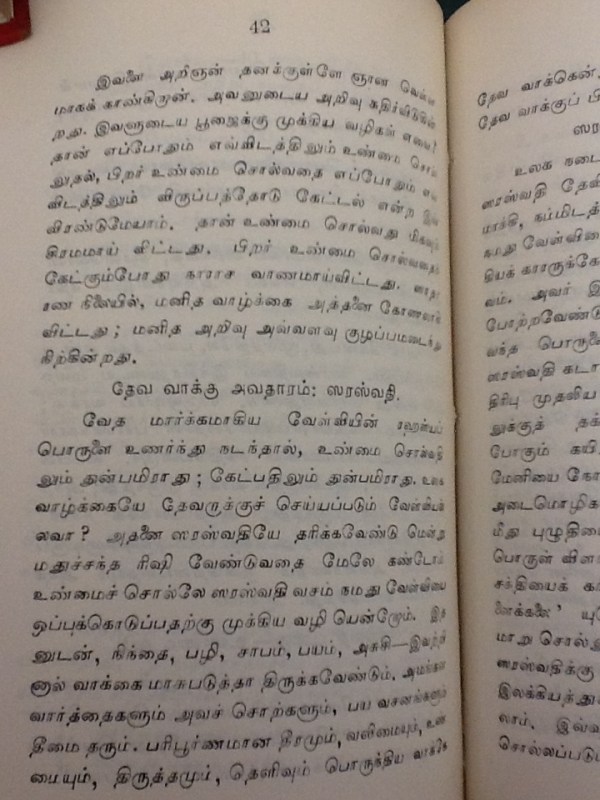 42
இவளை அறிஞன் தனக்குள்ளே ஞான வெள்ள
மாகக் காண்கிறான். அவனுடைய அறிவு கதிர்விடுகின்
றது. இவளுடைய பூஜைக்கு முக்கிய வழிகள் எவை?
தான் எப்போதும் எவ்விடத்திலும் உண்மை சொல்
லுதல், பிறர் உண்மை சொல்வதை எப்போதும் எவ்
விடத்திலும் விருப்பத்தோடு கேட்டல் என்ற இவ்
விரண்டுமேயாம். தான் உண்மை சொல்வது மிகவும்
சிரமமாய் விட்டது. பிறர் உண்மை சொல்வதைக்
கேட்கும்போது நாராச வாணமாய்விட்டது. சாதா
ரண நிலையில், மனித வாழ்க்கை அத்தனை கோணலாய்
விட்டது; மனித அறிவு அவ்வளவு குழப்பமடைந்து
நிற்கின்றது.
தேவ வாக்கு அவதாரம்: ஸரஸ்வதி.
வேத மார்க்கமாகிய வேள்வியின் ரஹஸ்யப்
பொருளை உணர்ந்து நடந்தால், உண்மை சொல்வதி
லும் துன்பமிராது; கேட்பதிலும் துன்பமிராது. உலக
வாழ்க்கையே தேவருக்குச் செய்யப்படும் வேள்வியல்
லவா? அதனை ஸரஸ்வதியே தரிக்கவேண்டு மென்று
மதுச்சந்த ரிஷி வேண்டுவதை மேலே கண்டோம்
உண்மைச் சொல்லே ஸரஸ்வதி வசம் நமது வேள்வியை
ஒப்புக்கொடுப்பதற்கு முக்கிய வழி யென்றோம். இத
னுடன், நிந்தை, பழி, சாபம், பயம், அசுசி—இவற்றி
னால் வாக்கை மாசுபடுத்தா திருக்கவேண்டும். அமங்கல
வார்த்தைகளும் அவச் சொற்களும், பய வசனங்களும்
தீமை தரும். பரிபூர்ணமான தீரமும், வலிமையும், உண்
மையும், திருத்தமும், தெளிவும் பொருந்திய வாக்கே
தேவ வாக்கென்
தேவ வாக்குப் பி
ஸர
உலக நடை
ஸரஸ்வதி தேவி
மாக்கி, நம்மிடத்
நமது வேள்வியை
கியக் காரருக்கே
வம். அவர் இ
போற்றவேண்டு
வந்த பொருளை
ஸரஸ்வதி கடா
திரிபு முதலிய
லுக்குத் தக்
போகும் கயி
மேனியை கோ
அடைமொழிக
மீது புழுதியை
பொருள் விள
சக்தியைக் க
ளைக்கலை' யு
மாறு சொல்
ஸரஸ்வதிக்கு
இலக்கியத்து
லாம். இவ்
சொல்லப்படு